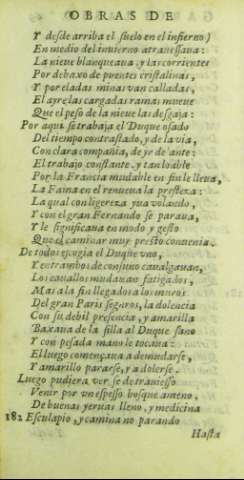 OBRAS DE
Y desde arriba el suelo en el infierno)
En medio del inuierno atrauessaua:
La nieue blanqueaua, y las corrientes
Por debaxo de puentes cristalinas,
Y por eladas minas van calladas,
El ayre las cargadas ramas mueue
Que el peso de la nieue las desgaja:
Por aqui se trabaja el Duque osado
Del tiempo contrastado, y de la via,
Con clara compañia, de yr de ante:
El trabajo constante, y tan loable
Por la Francia mudable en fin le lleua,
La Fama en el renueua la presteza:
La qual con ligereza yua volando,
Y con el gran Fernando se paraua,
Y le significaua en modo y gesto
Que el caminar muy presto conuenia.
De todos escogia el Duque vno,
Y entrambos de consuno caualgauan,
Los cauallos mudauan fatigados,
Mas a la fin llegados a los muros
Del gran Paris seguros, la dolencia
Con su debil presencia, y amarilla
Baxaua de la silla al Duque sano
Y con pesada mano le tocaua:
El luego començaua a demudarse,
Y amarillo pararse, y a dolerse.
Luego pudiera ver se de trauesso
Venir por vn espesso bosque ameno,
De buenas yeruas lleno, y medicina
182 Esculapio, y camina no parando
Hasta